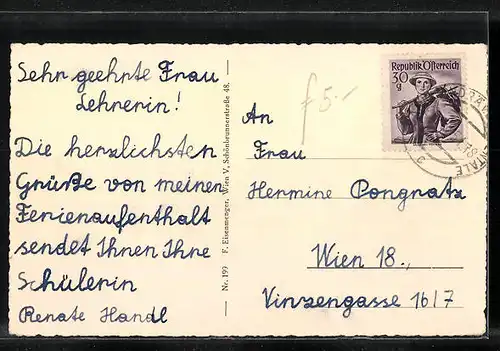 Sehr geehrte Frau
Lehrerin!
Die herzlichsten
Grüße von meinen
Ferienaufenthalt
sendet Ihnen Ihre
Schülerin
Renate Handl
Nr. 199 F. Eisenmenger, Wien V, Schönbrunnerstraße 48.
f 5.-
Republik Österreich
30
g
An
Frau
Hermine Pongratz
Wien 18.,
Vinzengasse 16/7